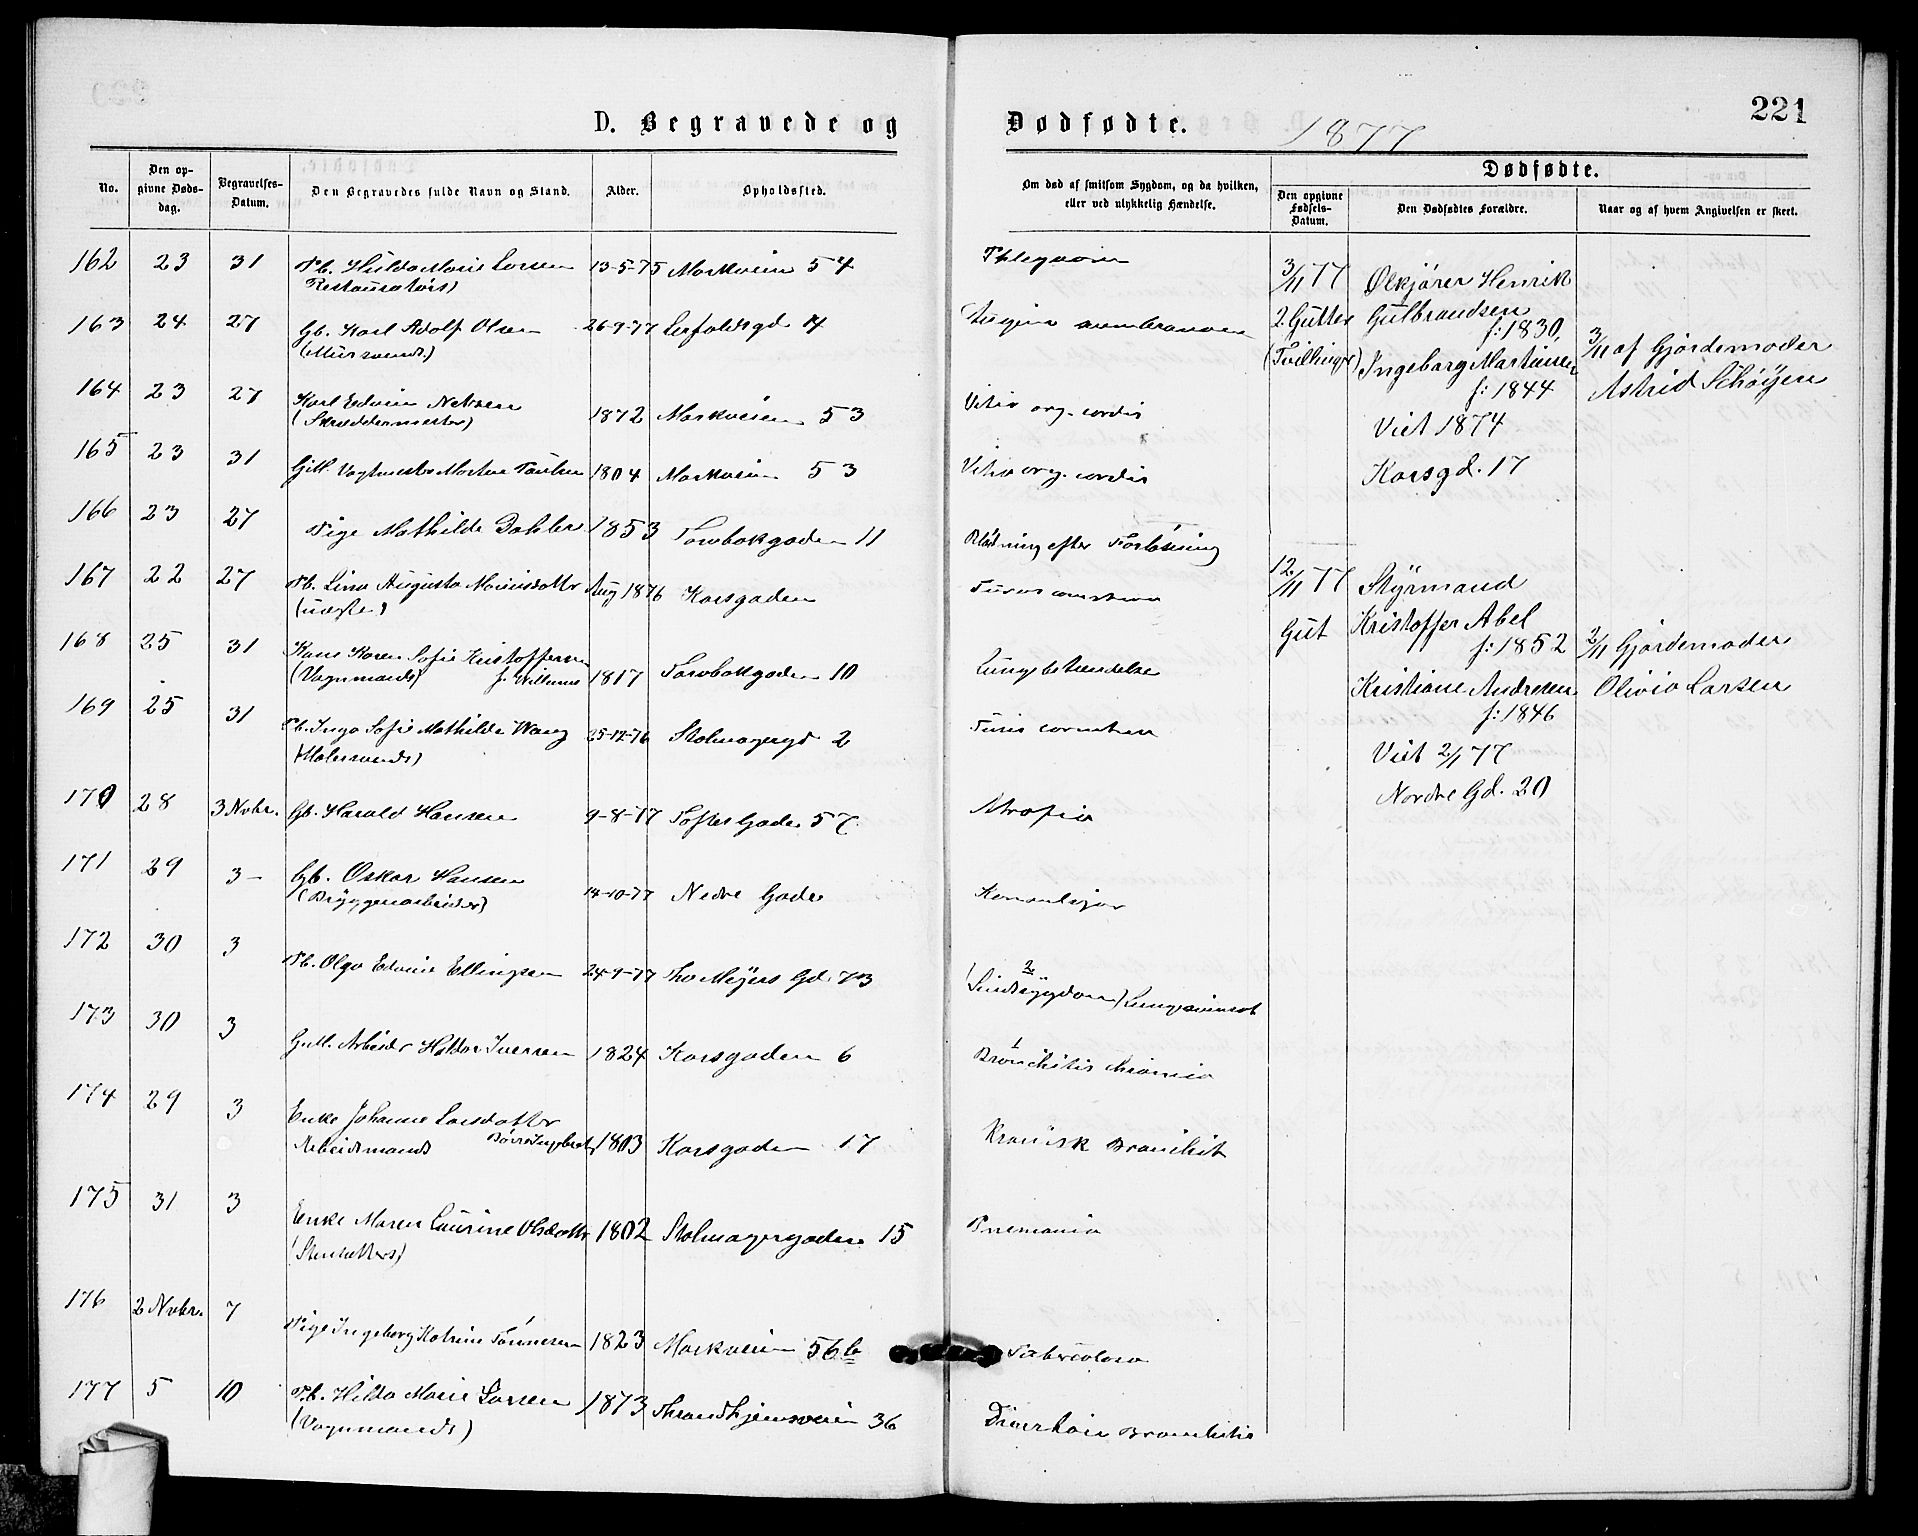 D. Begravede og Dødfødte.
1877
221
No.
Den opgivne Dødsdag.
Begravelses-Datum.
Den Begravedes fulde Navn og Stand.
Alder.
Opholdssted.
Om død af smitsom Sygdom, og da hvilken, eller ved ulykkelig Hændelse.
Dødfødte.
Den opgivne Fødsels-Datum.
Den Dødfødtes Forældre.
Naar og af hvem Angivelsen er skeet.
162 23 31 Pb. Hulda Marie Larsen 13-5-75 Markveien 54
163 24 27 Gb. Karl Adolf Olsen 26-9-77
(Murmands)
164 23 27 Karl Edvin 1872 Markveien 53 Vitia org. cordis
(Skreddermester)
165 23 31 1804 Markveien 53 Vitia org. cordis
166 23 27 Pige Mathilde 1853 Torvbakgaden 11 Blødning efter Forløsning
167 22 27 Pb. Lina Augusta Aug 1876 Korsgaden
(uægte)
168 25 31 Kone Karen Sofie Kristoffersen 1817 Torvbakgaden 10 Lungebetændelse
(Vognmands)
169 25 31 Pb. Inga Sofie Mathilde Wang 25-12-76 Stolmagergd 2
(Malersvends)
170 28 3 Novbr. Gb. Harald Hansen 9-8-77 Toftes Gade 57 Atrofia
171 29 3 – Gb. Oskar Hansen 14-10-77 Nedre Gade
(Bryggeriarbeider)
172 30 3 Pb. Olga Edvine Ellingsen 24-9-77 Tho Meyers Gd. 73
173 30 3 Gutl. Arbeider Haldor Iversen 1824 Korsgaden 6 Bronchitis chronica
174 29 3 Enke Johanne Larsdatter 1803 Korsgaden 17 Kronisk Bronchit
Arbeidsmands
175 31 3 Enke Maren Laurine Olsdatter 1802 Stolmagergaden 15 Pnemonia
176 2 Novbr. 7 Pige Ingeborg Katrine Tønnesen 1823 Markveien 56b Tuberculosa
177 5 10 Pb. Hilda Marie Larsen 1873 Throndhjemsveien 36 Bronchitis
(Vognmands)
3/11 77 Ølkjører Henrik
2 Gutter Gulbrandsen
f: 1830,
(Tvillinger) Ingeborg Martinsen
f: 1844
Viet 1874
Korsgd. 17
3/11 af Gjordemoder
Astrid Schøyen
12/11 77 Styrmand
Gut Kristoffer Abel
f: 1852
Kristiane Andresen
f: 1846
Viet 2/1 77
Nordre Gd. 20
2/11 Gjordemoder
Olivia Larsen